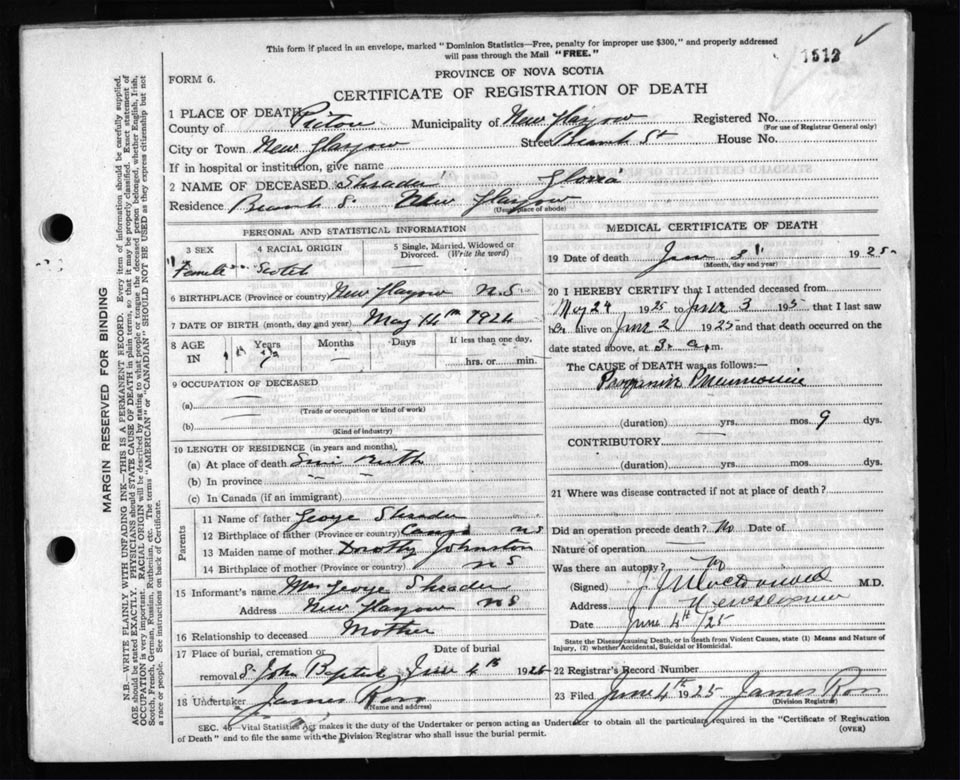 This form if placed in an envelope, marked "Dominion Statistics—Free, penalty for improper use $300," and properly addressed
will pass through the Mail "FREE."
1512
PROVINCE OF NOVA SCOTIA
FORM 6.
CERTIFICATE OF REGISTRATION OF DEATH
1 PLACE OF DEATH
County of Pictou Municipality of New Glasgow Registered No.
(For use of Registrar General only)
City or Town New Glasgow Street St House No.
If in hospital or institution, give name
2 NAME OF DECEASED Shrader
Residence New Glasgow
(Usual place of abode)
PERSONAL AND STATISTICAL INFORMATION
3 SEX 4 RACIAL ORIGIN 5 Single, Married, Widowed or Divorced. (Write the word)
Female Scotch
6 BIRTHPLACE (Province or country) New Glasgow N.S
7 DATE OF BIRTH (month, day and year) May 14th 1924
8 AGE IN Years Months Days If less than one day,
hrs. or min.
9 OCCUPATION OF DECEASED
(a)
(Trade or occupation or kind of work)
(b)
(Kind of industry)
10 LENGTH OF RESIDENCE (in years and months)
(a) At place of death
(b) In province
(c) In Canada (if an immigrant)
Parents
11 Name of father George Shrader
12 Birthplace of father (Province or country) Canso N S
13 Maiden name of mother Dorothy Johnston
14 Birthplace of mother (Province or country) N S
15 Informant's name Mrs George Shrader
Address New Glasgow N S
16 Relationship to deceased Mother
17 Place of burial, cremation or Date of burial
removal St John Baptist June 4th 1925
18 Undertaker James Ross
(Name and address)
MEDICAL CERTIFICATE OF DEATH
19 Date of death June 3 1925
(Month, day and year)
20 I HEREBY CERTIFY that I attended deceased from
May 24 1925 to June 3 that I last saw
her alive on June 2 1925 and that death occurred on the
date stated above, at 3. a.m.
The CAUSE OF DEATH was as follows:—
Pneumonia
(duration) yrs. mos. 9 dys.
CONTRIBUTORY
(duration) yrs. mos. dys.
21 Where was disease contracted if not at place of death?
Did an operation precede death? No Date of
Nature of operation
Was there an autopsy? No
(Signed) M.D.
Address
Date June 4th /25
State the Disease causing Death, or in death from Violent Causes, state (1) Means and Nature of
Injury, (2) whether Accidental, Suicidal or Homicidal.
22 Registrar's Record Number
23 Filed June 4th 1925 James Ross
(Division Registrar)
SEC. 45—Vital Statistics Act makes it the duty of the Undertaker or person acting as Undertaker to obtain all the particulars required in the "Certificate of Registration
of Death" and to file the same with the Division Registrar who shall issue the burial permit.
(OVER)
MARGIN RESERVED FOR BINDING
N.B.—WRITE PLAINLY WITH UNFADING INK—THIS IS A PERMANENT RECORD. Every item of information should be carefully supplied.
AGE should be stated EXACTLY. PHYSICIANS should STATE CAUSE OF DEATH in plain terms, so that it may be properly classified. Exact statement of
OCCUPATION is very important. RACIAL ORIGIN will be described by stating to what people or tongue the deceased person belonged, whether English, Irish,
Scotch, French, German, Russian, Ruthenian, etc. The terms "AMERICAN" or "CANADIAN" SHOULD NOT BE USED as they express citizenship but not
a race or people. See instructions on back of Certificate.